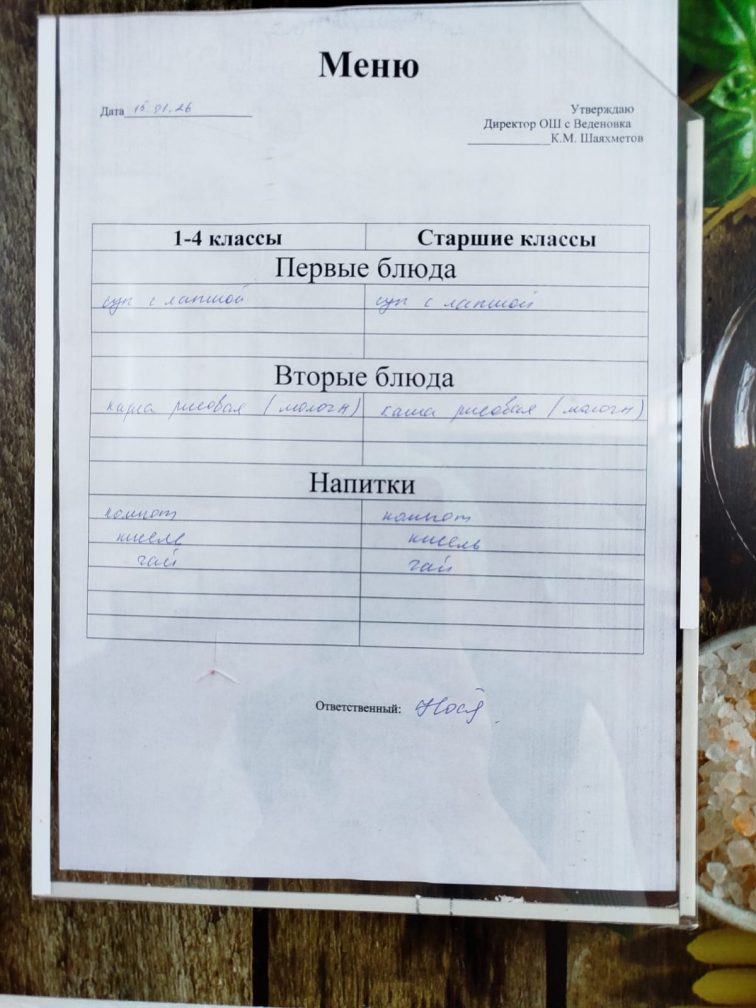 Меню
Дата 15.01.26
Утверждаю
Директор ОШ с Веденовка
К.М. Шаяхметов
1-4 классы Старшие классы
Первые блюда
суп с лапшой суп с лапшой
Вторые блюда
каша рисовая (молочн) каша рисовая (молочн)
Напитки
компот компот
кисель кисель
чай чай
Ответственный: